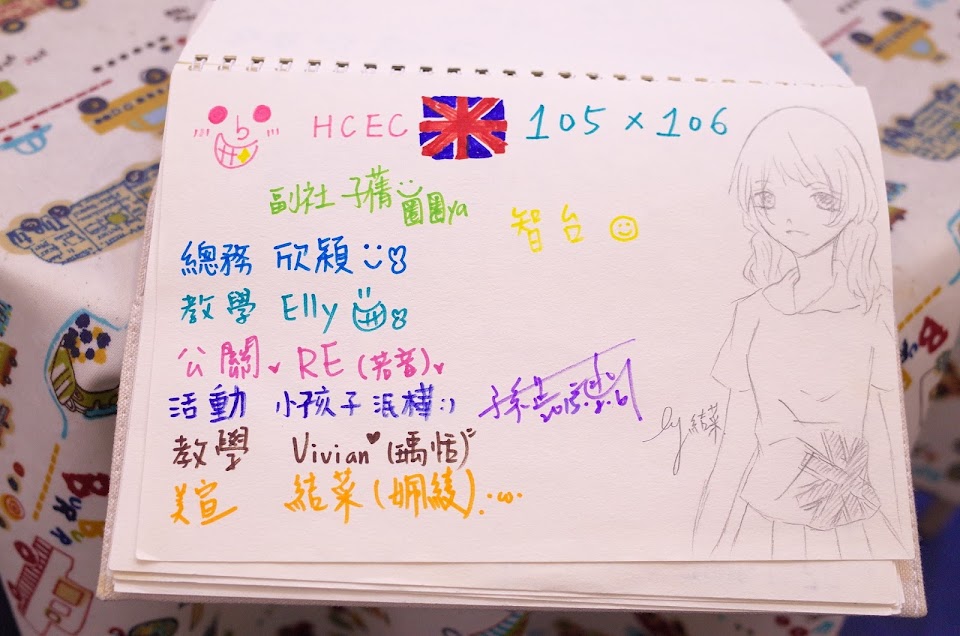 HCEC 105 × 106
副社 子蒨 圈圈ya
智台
總務 欣穎
教學 Elly
公關 RE (若音)
活動 小孩子 泯樺:)
教學 Vivian (瑀恬)
美宣 結菜 (姵綾)
by 結菜